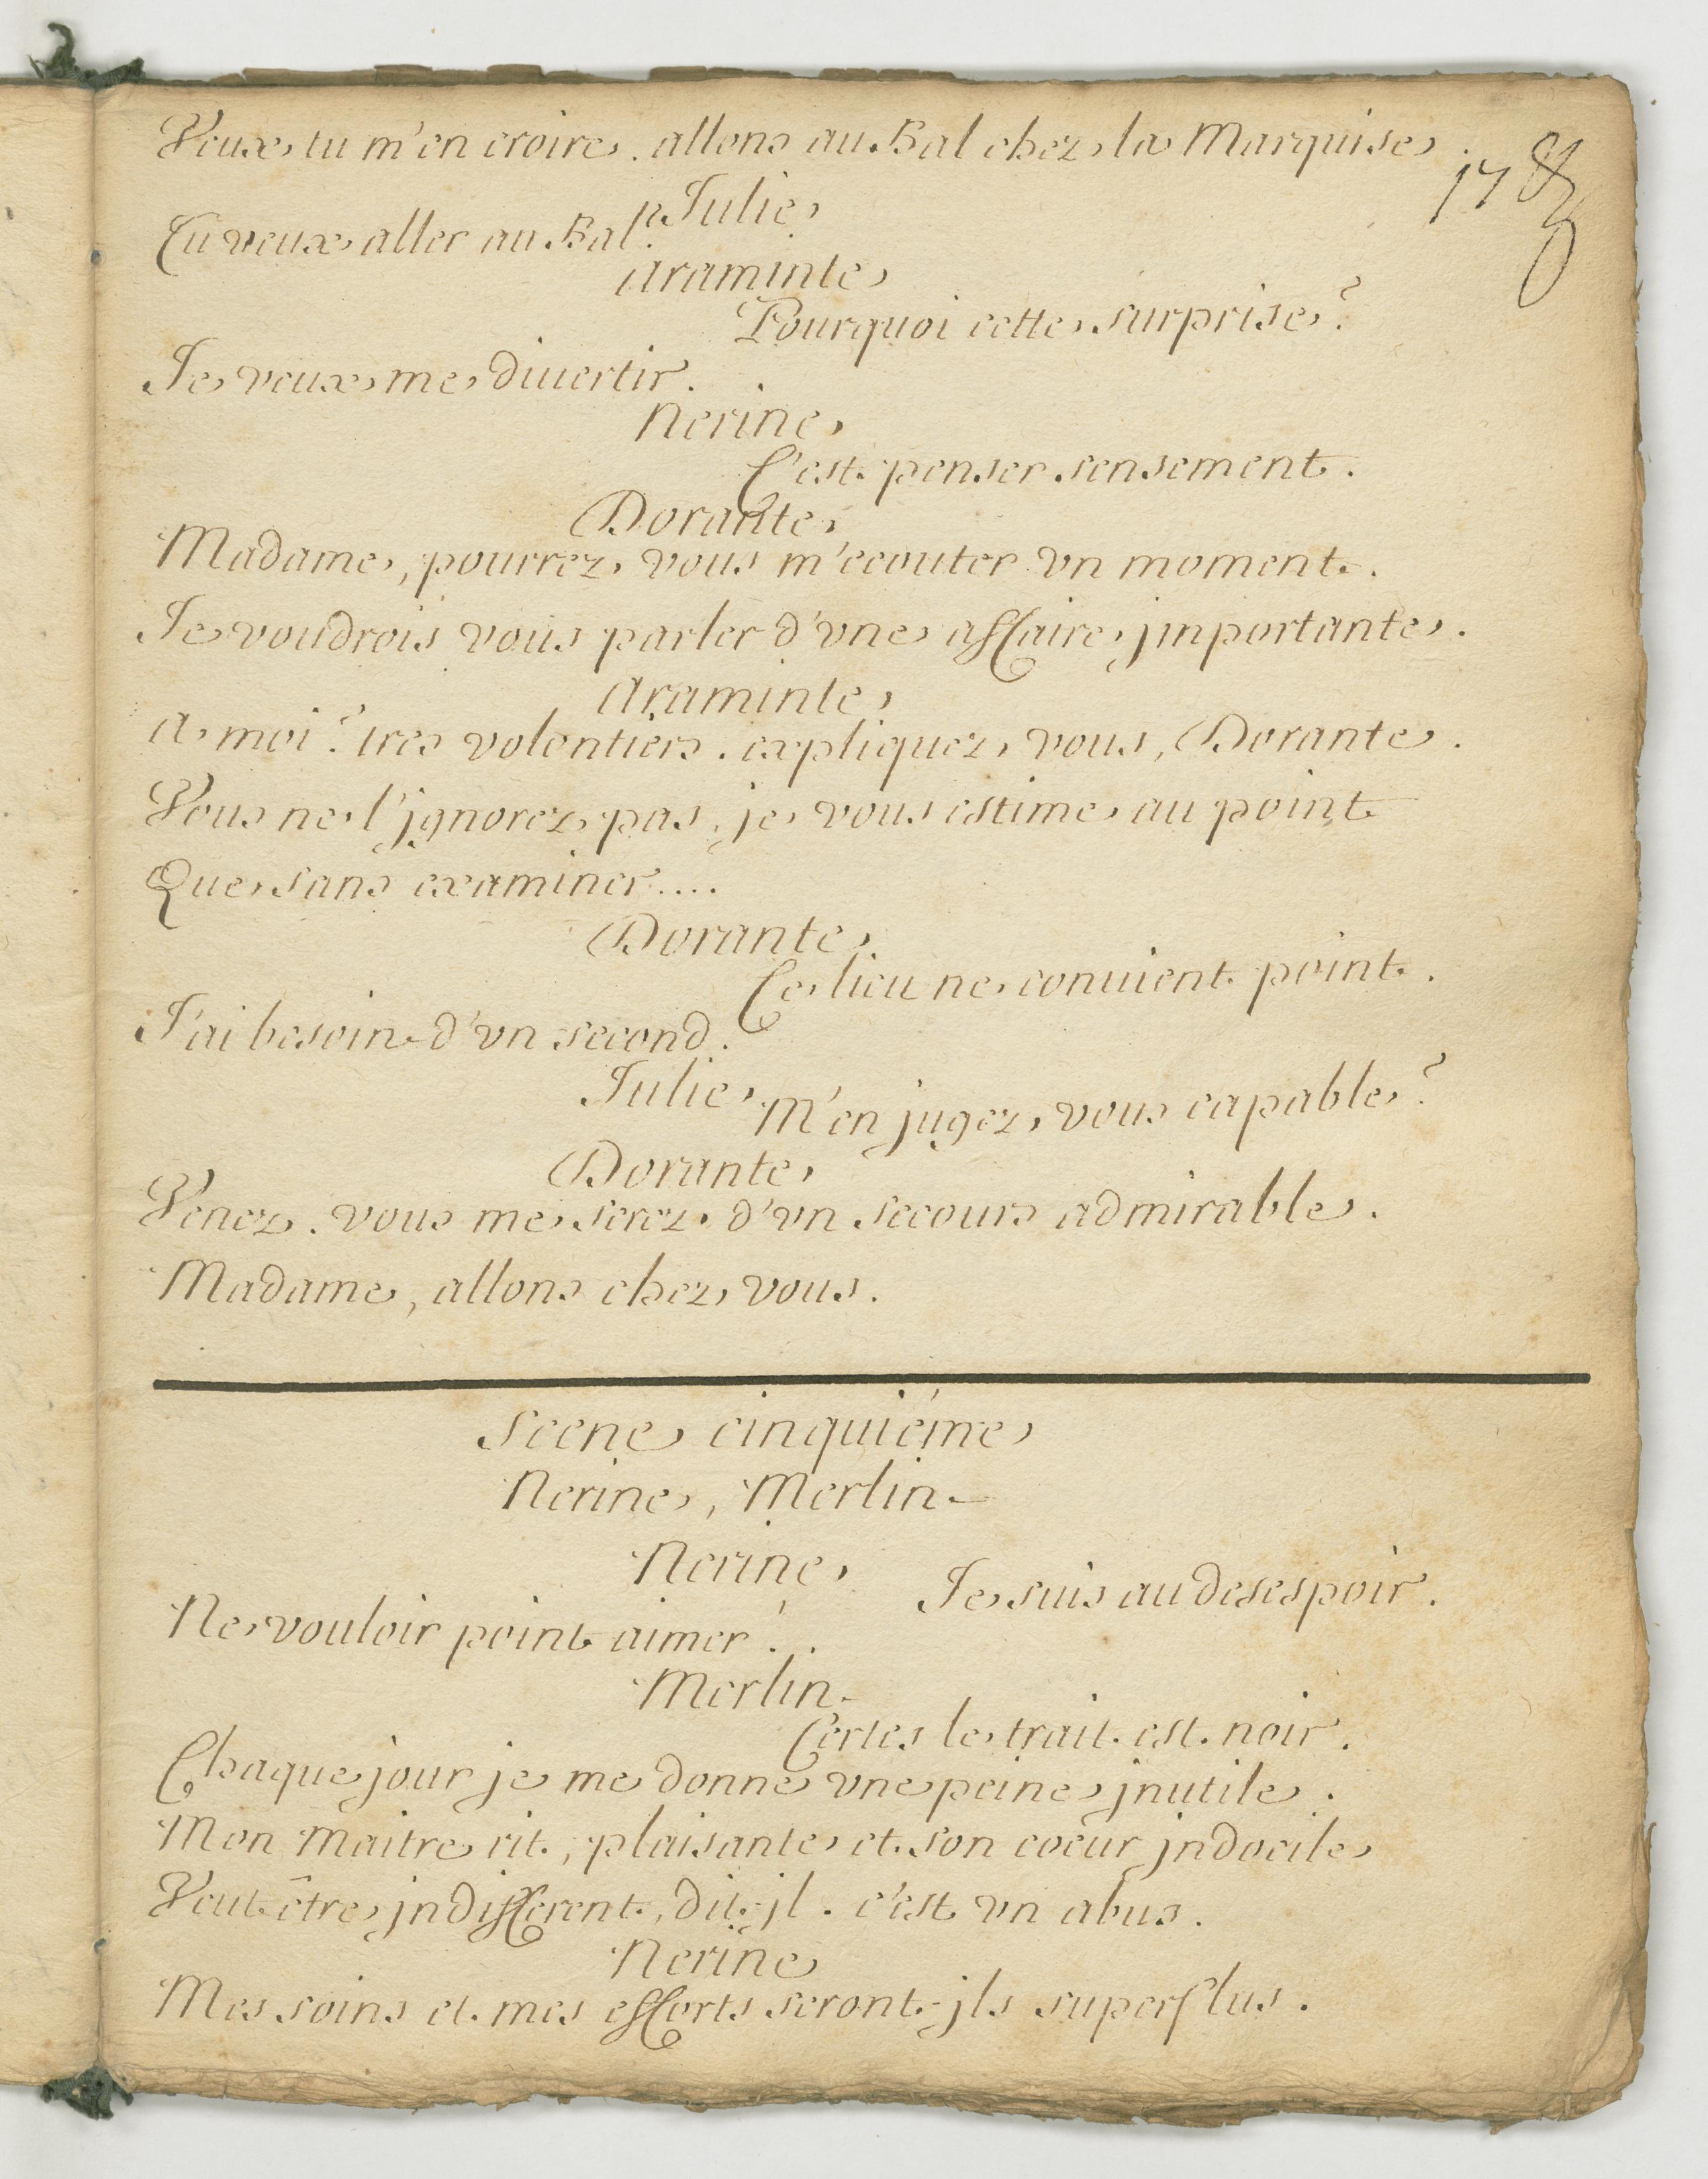 Veux tu m'en croire. allons au Bal chez la Marquise.
17
Julie
Tu veux aller au Bal?
Araminte
Pourquoi cette surprise?
Je veux me diuertir.
Nerine
C'est penser sensement.
Dorante
Madame, pourrez vous m'ecouter vn moment.
Je voudrois vous parler d'vne affaire jmportante.
Araminte
A moi? tres volontiers. expliquez vous, Dorante.
Vous ne l'jgnorez pas, je vous estime au point
Que sans examiner....
Dorante
Ce lieu ne conuient point.
J'ai besoin d'vn second.
Julie
M'en jugez vous capable?
Dorante
Venez. vous me serez d'vn secours admirable.
Madame, allons chez vous.
Scene cinquiéme
Nerine, Merlin
Nerine
Je suis au desespoir.
Ne vouloir point aimer!
Merlin
Certes le trait est noir.
Chaque jour je me donne vne peine jnutile.
Mon Maitre rit, plaisante et son coeur jndocile
Veut être jndifferent, dit-jl. c'est vn abus.
Nerine
Mes soins et mes efforts seront-jls superflus.